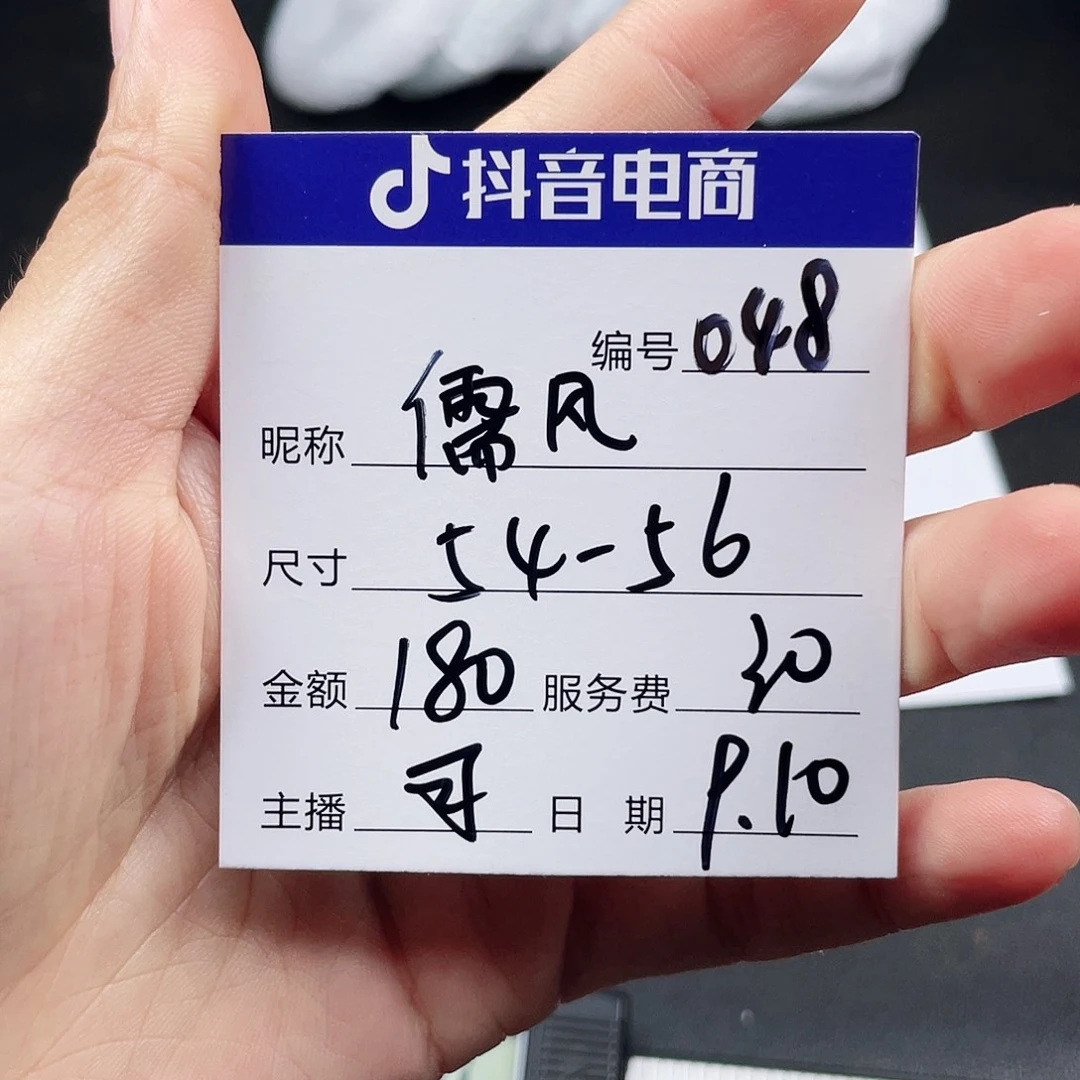 抖音电商
编号 048
昵称 儒风
尺寸 54-56
金额 180 服务费 30
主播 日 期 9.10